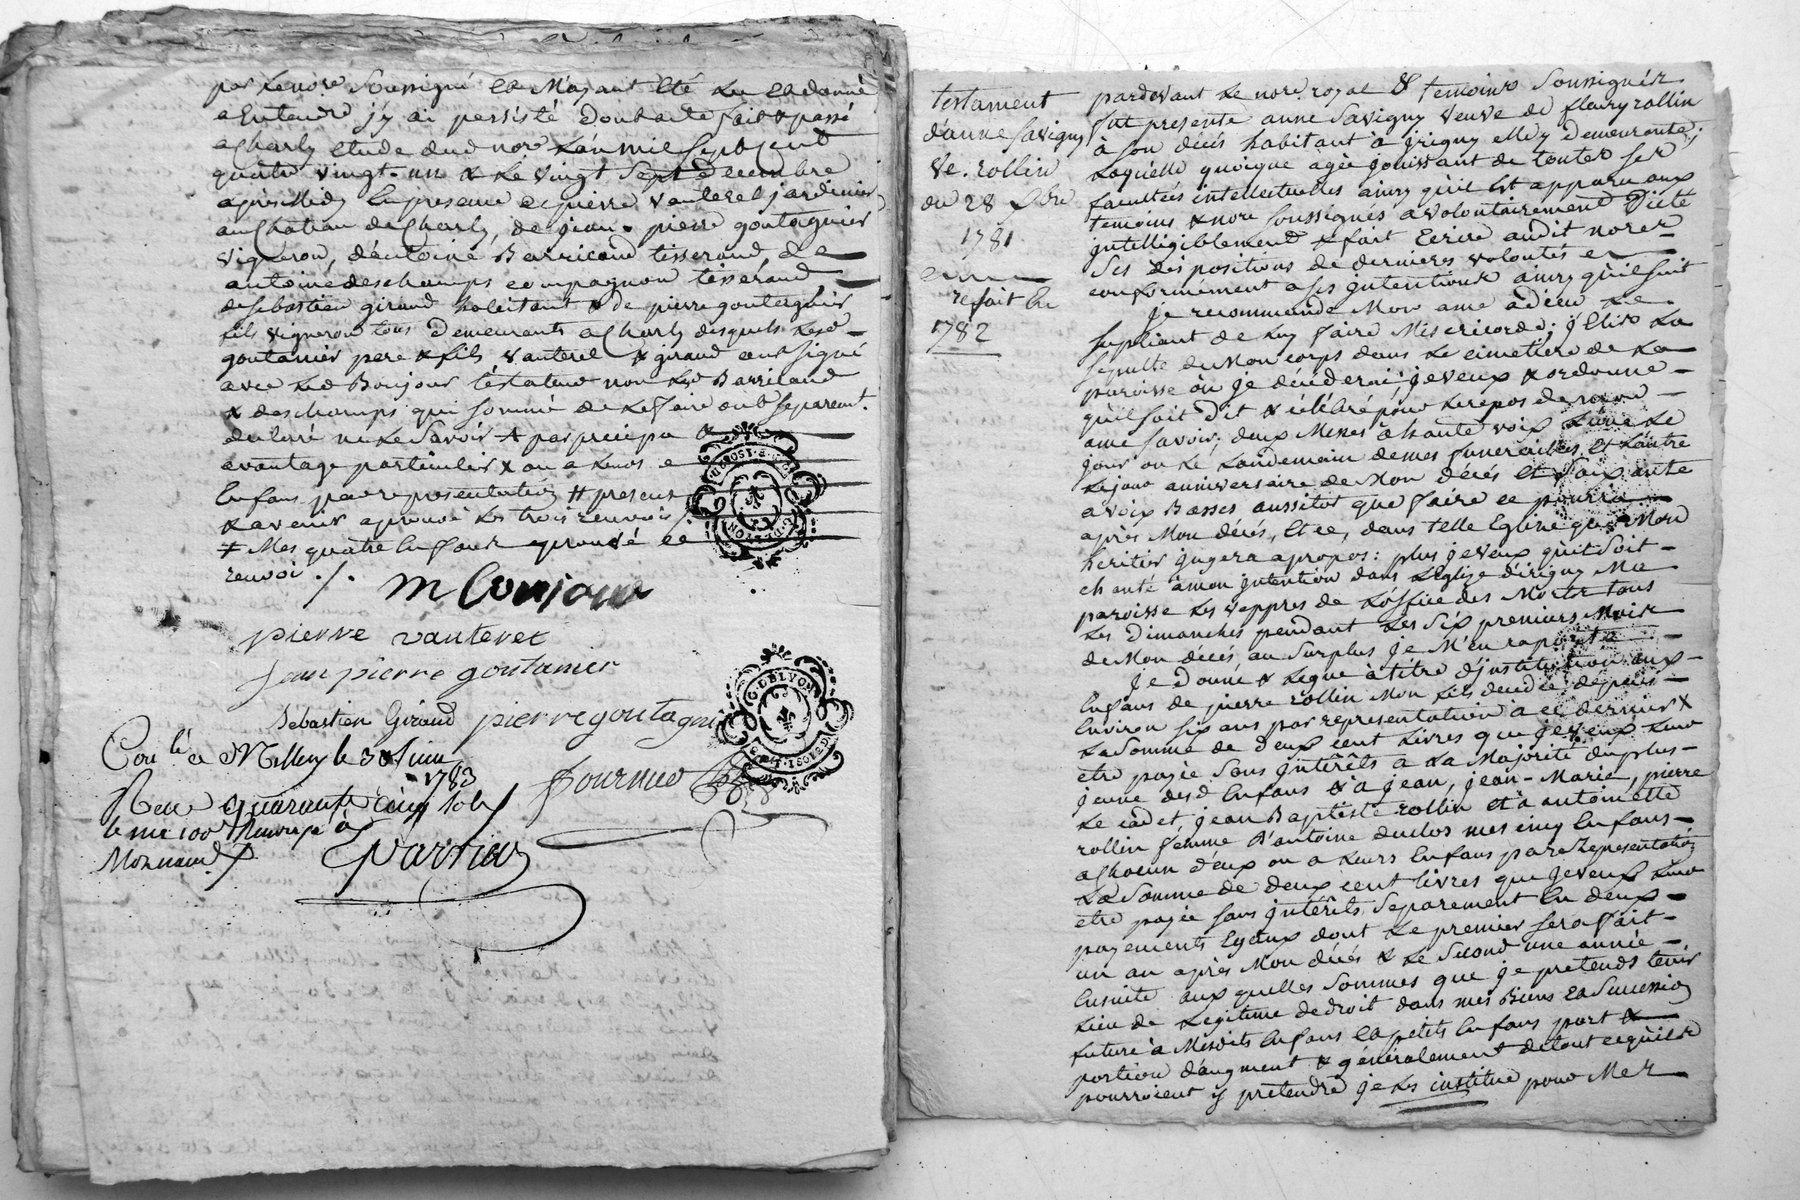 par le notre soussigné et m'ayant été lu et donné
a Entendre j'y ai persisté dont acte fait & passé
a Charly Etude dud. nore L'an mil sept cent
quatre vingt un & le vingt sept decembre
après midy En presence de pierre vanterel jardinier
au Chateau de Charly, de jean pierre goutagnier
vigneron, d'antoine Barricand tisserand, de
antoine deschamps compagnon tisserand
de sebastien giraud habitant & de pierre goutagnier
fils vigneron tous demeurants a Charly desquels lesd.
goutanier pere & fils vanterel & giraud ont signé
avec led Boujour testateur non led Barricand
& deschamps qui sommé de le faire ont separemt.
declaré ne le savoir + par preciput &
avantage particulier & ou a leurs
Enfans par representation # presens
& avenir aprouvé les trois renvois /
# Mes quatre Enfans aprouvé ce
renvoi ./.
m Bonjour
pierre vanterel
jean pierre goutanier
Sebastien Giraud pierre goutagnier
Conlé a Millery le 30 Juin
1783
Fournier
Reçu quarante cinq sols
Monnand
G. DE LYON
testament
d'anne Savigny
Ve. rollin
du 28 Xbre
1781
refait En
1782
pardevant le nore. royal & temoins soussignés
fut presente anne Savigny veuve de fleury rollin
à son décés habitant à jrigny elle y demeurante;
Laquelle quoique agée jouissant de toutes ses
facultées intellectuelles ainsy qu'il Est apparu aux
temoins & nore soussignés a volontairement Dicté
jntelligiblement & fait Ecrire audit norer
Ses dispositions de dernieres volontés
conformément a ses jntentions ainsy qu'il suit
je recommande Mon ame a dieu le
supliant de luy faire Misericorde; j'Elis la
sepulte. de Mon corps dans le cimetiere de la
paroisse ou je décéderai; je veux & ordonne
qu'il soit Dit & célébré pour le repos de mon
ame savoir; deux Messes a haute voix L'une le
jour ou le Landemain de mes funerailles, & L'autre
le jour anniversaire de Mon décés Et soixante
a voix Basses aussitot que faire ce pourra
après Mon décés, Et ce, dans telle Eglise que Mon
heritier jugera apropos: plus je veux qu'il soit
chanté à mon jntention dans L'Eglise d'irigny Ma
paroisse les vepres de L'office des Morts tous
Les Dimanches pendant Les six premiers Mois
de Mon décés, au surplus je M'en raporte
je Donne & legue à titre d'jnstitution aux
Enfans de pierre rollin Mon fils décédé depuis
Environ six ans par representation a ce dernier &
La somme de Deux cent Livres que je veux Leur
etre payée sans jntérêts a La Majorité du plus
jeune desd. Enfans & a jean, jean-Marie, pierre
Le cadet jean Baptiste rollin et a antoinette
rollin femme d'antoine duclos mes cinq Enfans
a Chacun d'eux ou a leurs Enfans par representation
La somme de deux cent livres que je veux leur
etre payée sans jntérêts separement En deux
payements Egaux dont le premier sera fait
un an après Mon décés & Le second une année
Ensuite aux quelles sommes que je pretends tenir
lieu de legitime de droit dans mes Biens et succession
future a Mesdits Enfans et petits Enfans part &
portion d'augment & généralement de tout ce qu'ils
pourroient y pretendre je les institue pour Mes